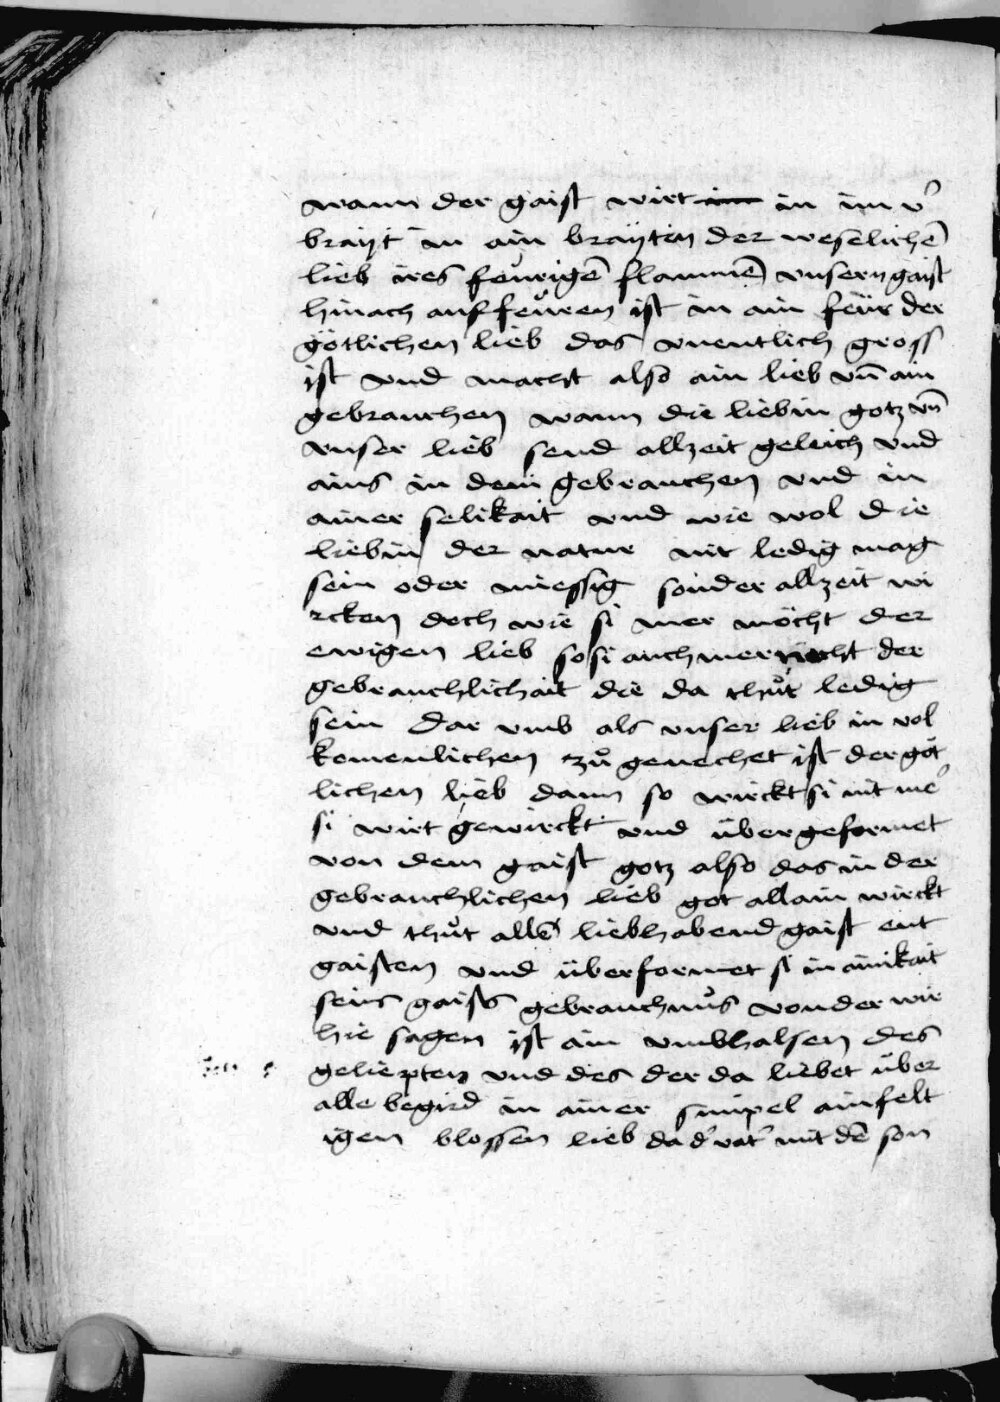 wann der gaist wirt in im v̾
brayt in ain brayten der weselichē
lieb ires feu̍rigē flammē vnsern gaist
hinach auffeu̍ren ist in ain feür der
götlichen lieb das vnentlich gross
ist vnd macht also ain lieb vn̄ ain
gebrauchen wann die liebin gotz vn̄
vnser lieb send allzeit geleich vnd
ains in dem gebrauchen vnd in
ainer selikait vnd wie wol die
liebin der natur nit ledig mag
sein oder miessig sonder allzeit wi
rcken doch wie si mer möcht der
ewigen lieb so si auch mer der
gebrauchlichait die da thůt ledig
sein dar vmb als vnser lieb in vol
komenlichen zů genechet ist der göt
lichen lieb dann so wirckt si nit me̾
si wirt gewirckt vnd übergeformet
von dem gaist gotz also das in der
gebrauchlichen lieb got allain wirckt
vnd thůt allē liebhabend gaist ent
gaisten vnd überformet si in ainikait
seins gaists gebrauchnůs von der wir
hie sagen ist ain vmbhalsen des
geliepten vnd des der da liebet über
alle begird in ainer simpel ainfelt
igen blossen lieb da d̾ vat̾ mit dē son